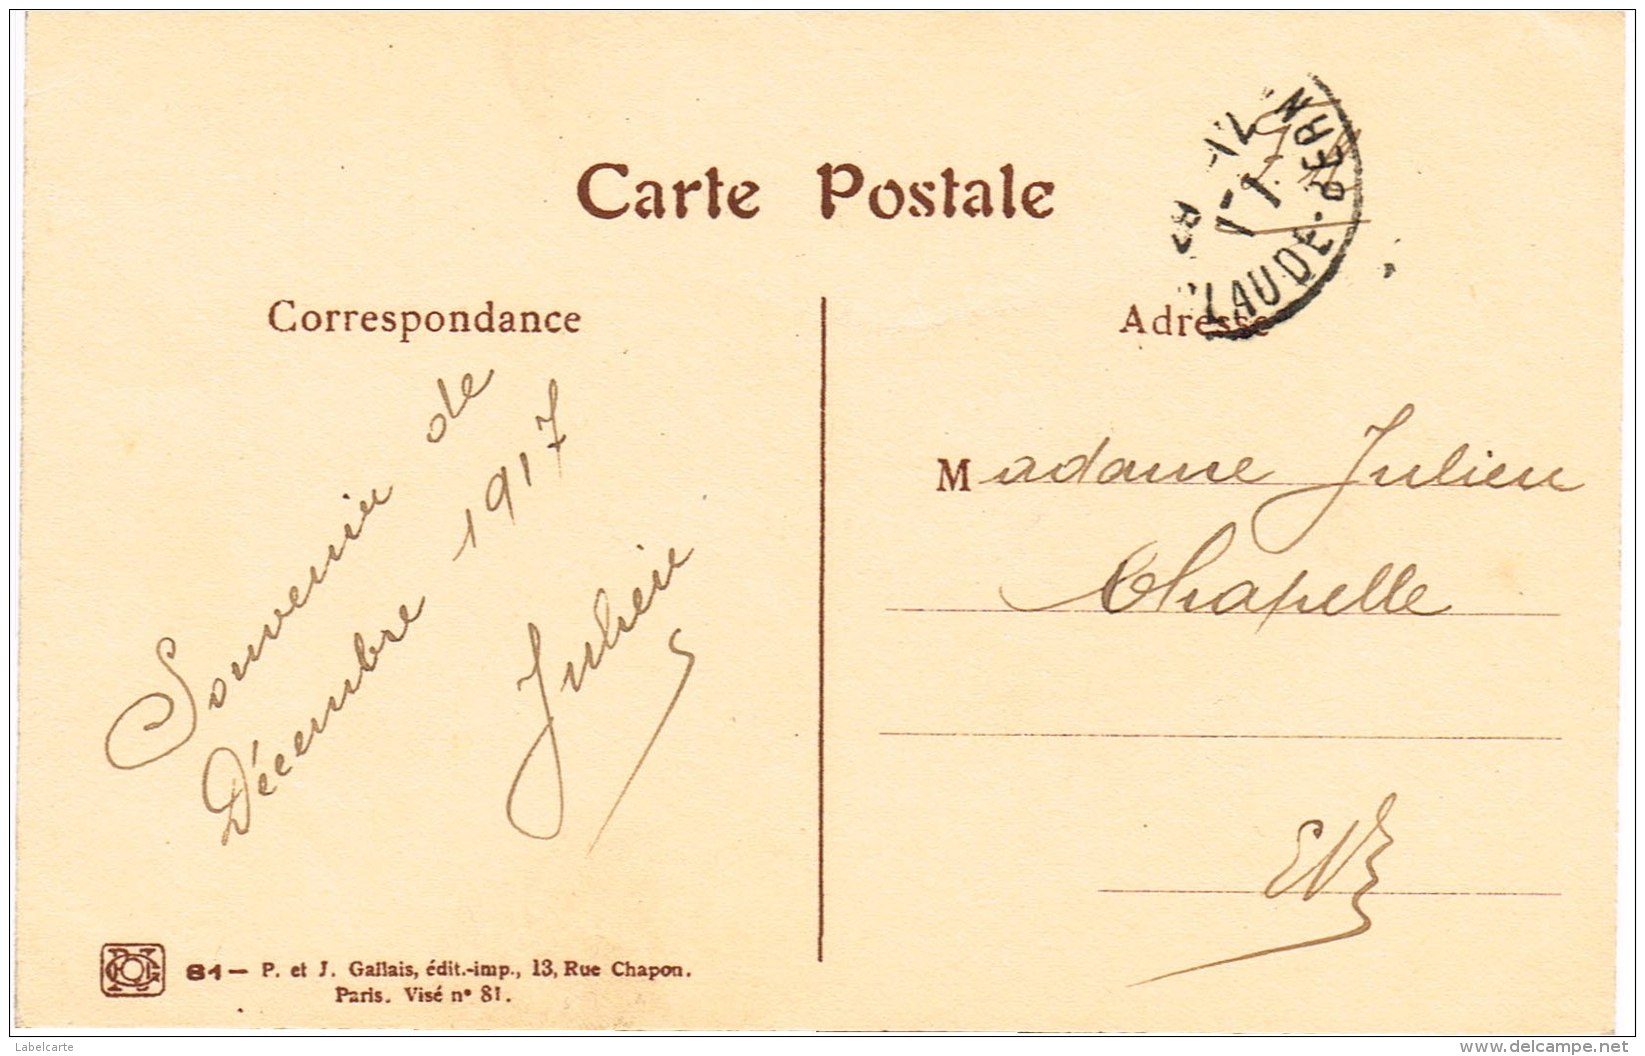 Carte Postale
LAUDE-BERN
Correspondance
Adresse
Souvenir de
Décembre 1917
Julien
Madame Julien
Chapelle
EV
81 — P. et J. Gallais, édit.-imp., 13, Rue Chapon.
Paris. Visé n° 81.
Labelcarte
www.delcampe.net